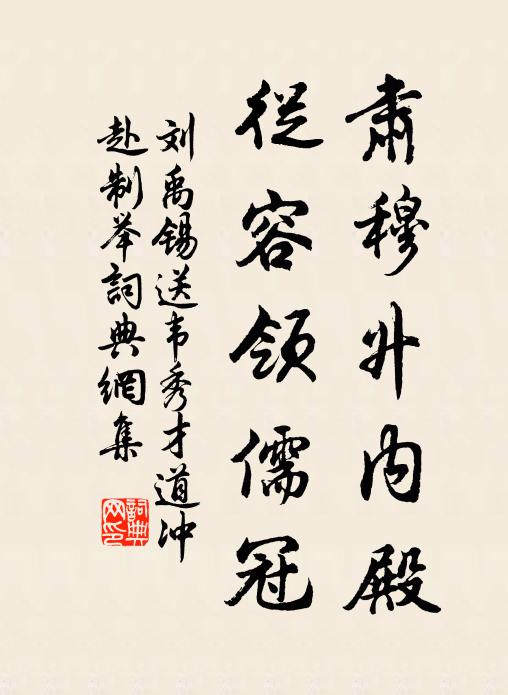 肃穆升内殿
從容領儒冠
刘禹锡送韦秀才道冲
赴制举詞典網集
詞典
网印